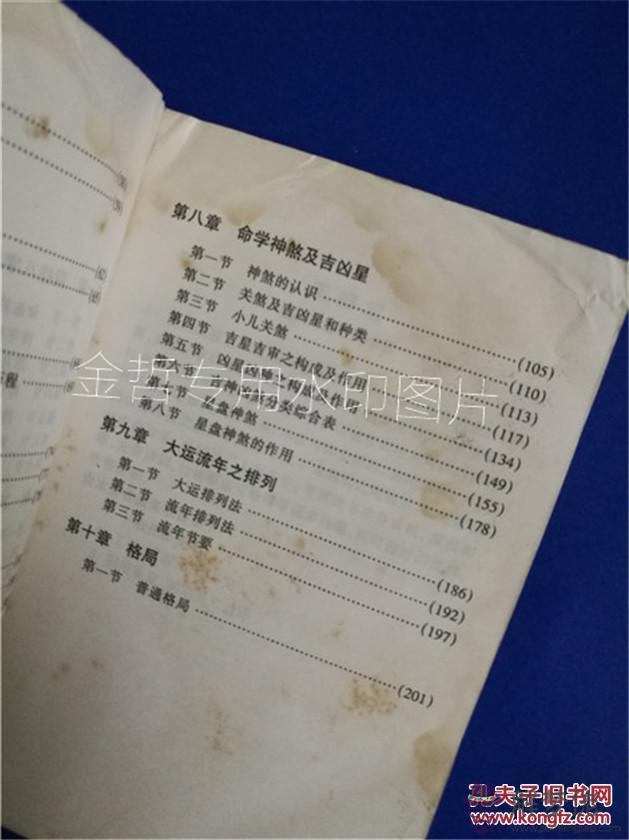 第八章 命学神煞及吉凶星
第一节 神煞的认识……(105)
第二节 关煞及吉凶星和种类……(110)
第三节 小儿关煞……(113)
第四节 吉星吉审之构成及作用……(117)
第五节 凶星凶之构成及作用……(134)
第六节 吉神凶煞分类综合表……(149)
第七节 星盘神煞……(155)
第八节 星盘神煞的作用……(178)
第九章 大运流年之排列
第一节 大运排列法……(186)
第二节 流年排列法……(192)
第三节 流年节要……(197)
第十章 格局
第一节 普通格局……(201)
程
金哲专用水印图片
孔夫子旧书网
www.kongfz.com